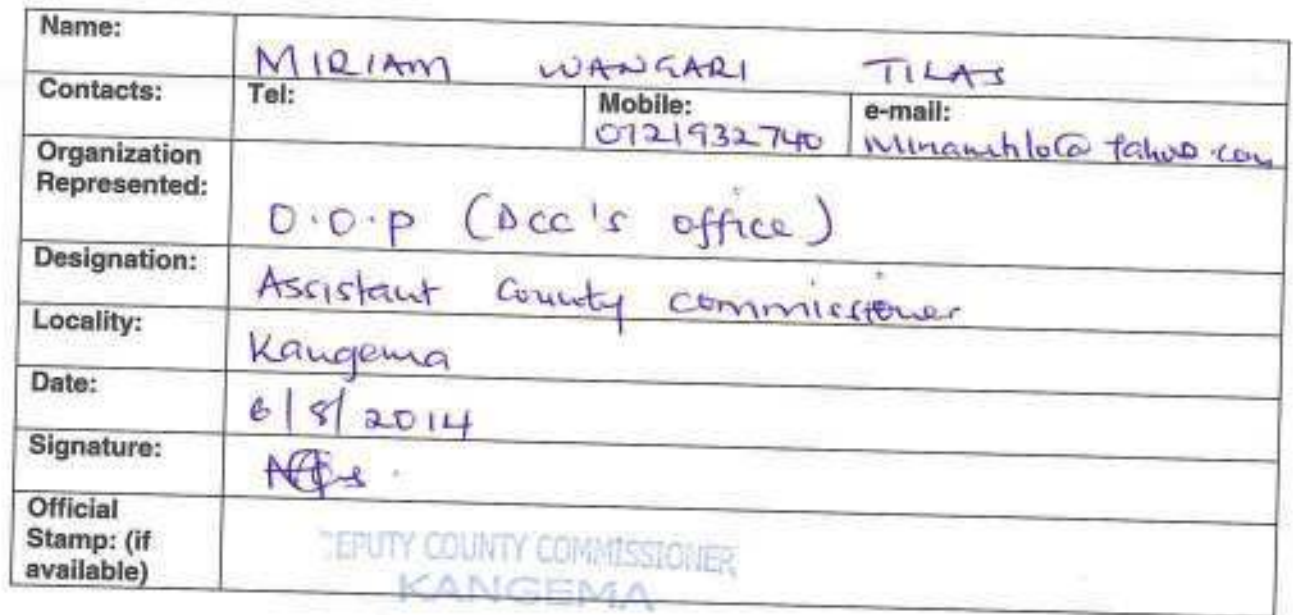 Name:
MIRIAM WANGARI TILAS
Contacts: Tel: Mobile: e-mail:
0721932740
Organization
Represented:
O.O.P (DCC's office)
Designation:
Assistant County Commissioner
Locality:
Kangema
Date:
6/8/2014
Signature:
Official
Stamp: (if
available)
DEPUTY COUNTY COMMISSIONER
KANGEMA